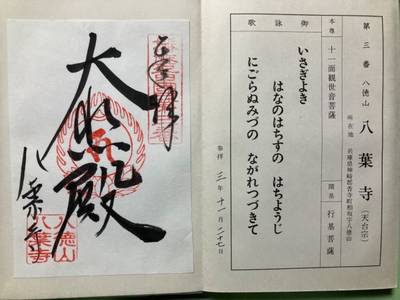 第三番 八徳山 八葉寺 (天台宗)
所在地 兵庫県神崎郡香寺町相坂字八徳山
本尊 十一面観世音菩薩 開基 行基菩薩
御詠歌
いさぎよき
はなのはちすの はちようじ
にごらぬみづの ながれつづきて
参拝 三年 十一月 二十七日
奉拝
大悲殿
八葉寺
八徳山
八葉寺